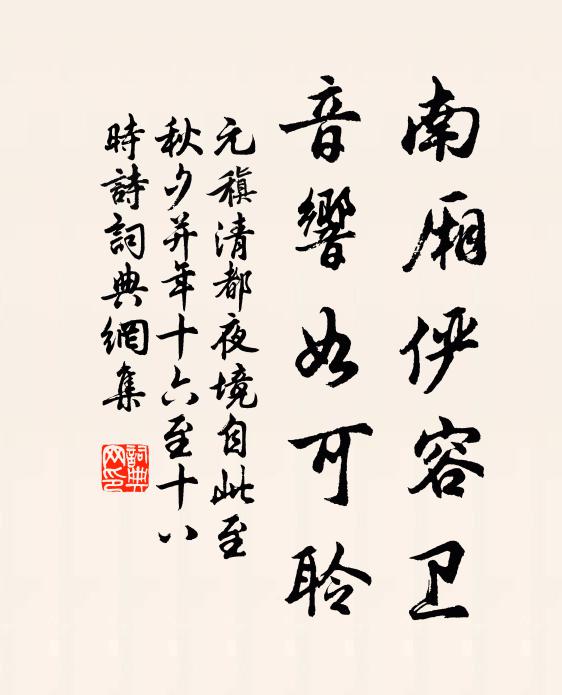 南厢俨容卫
音響如可聆
元稹清都夜境自此至
秋夕并年十六至十八
時詩詞典網集
詞典网印